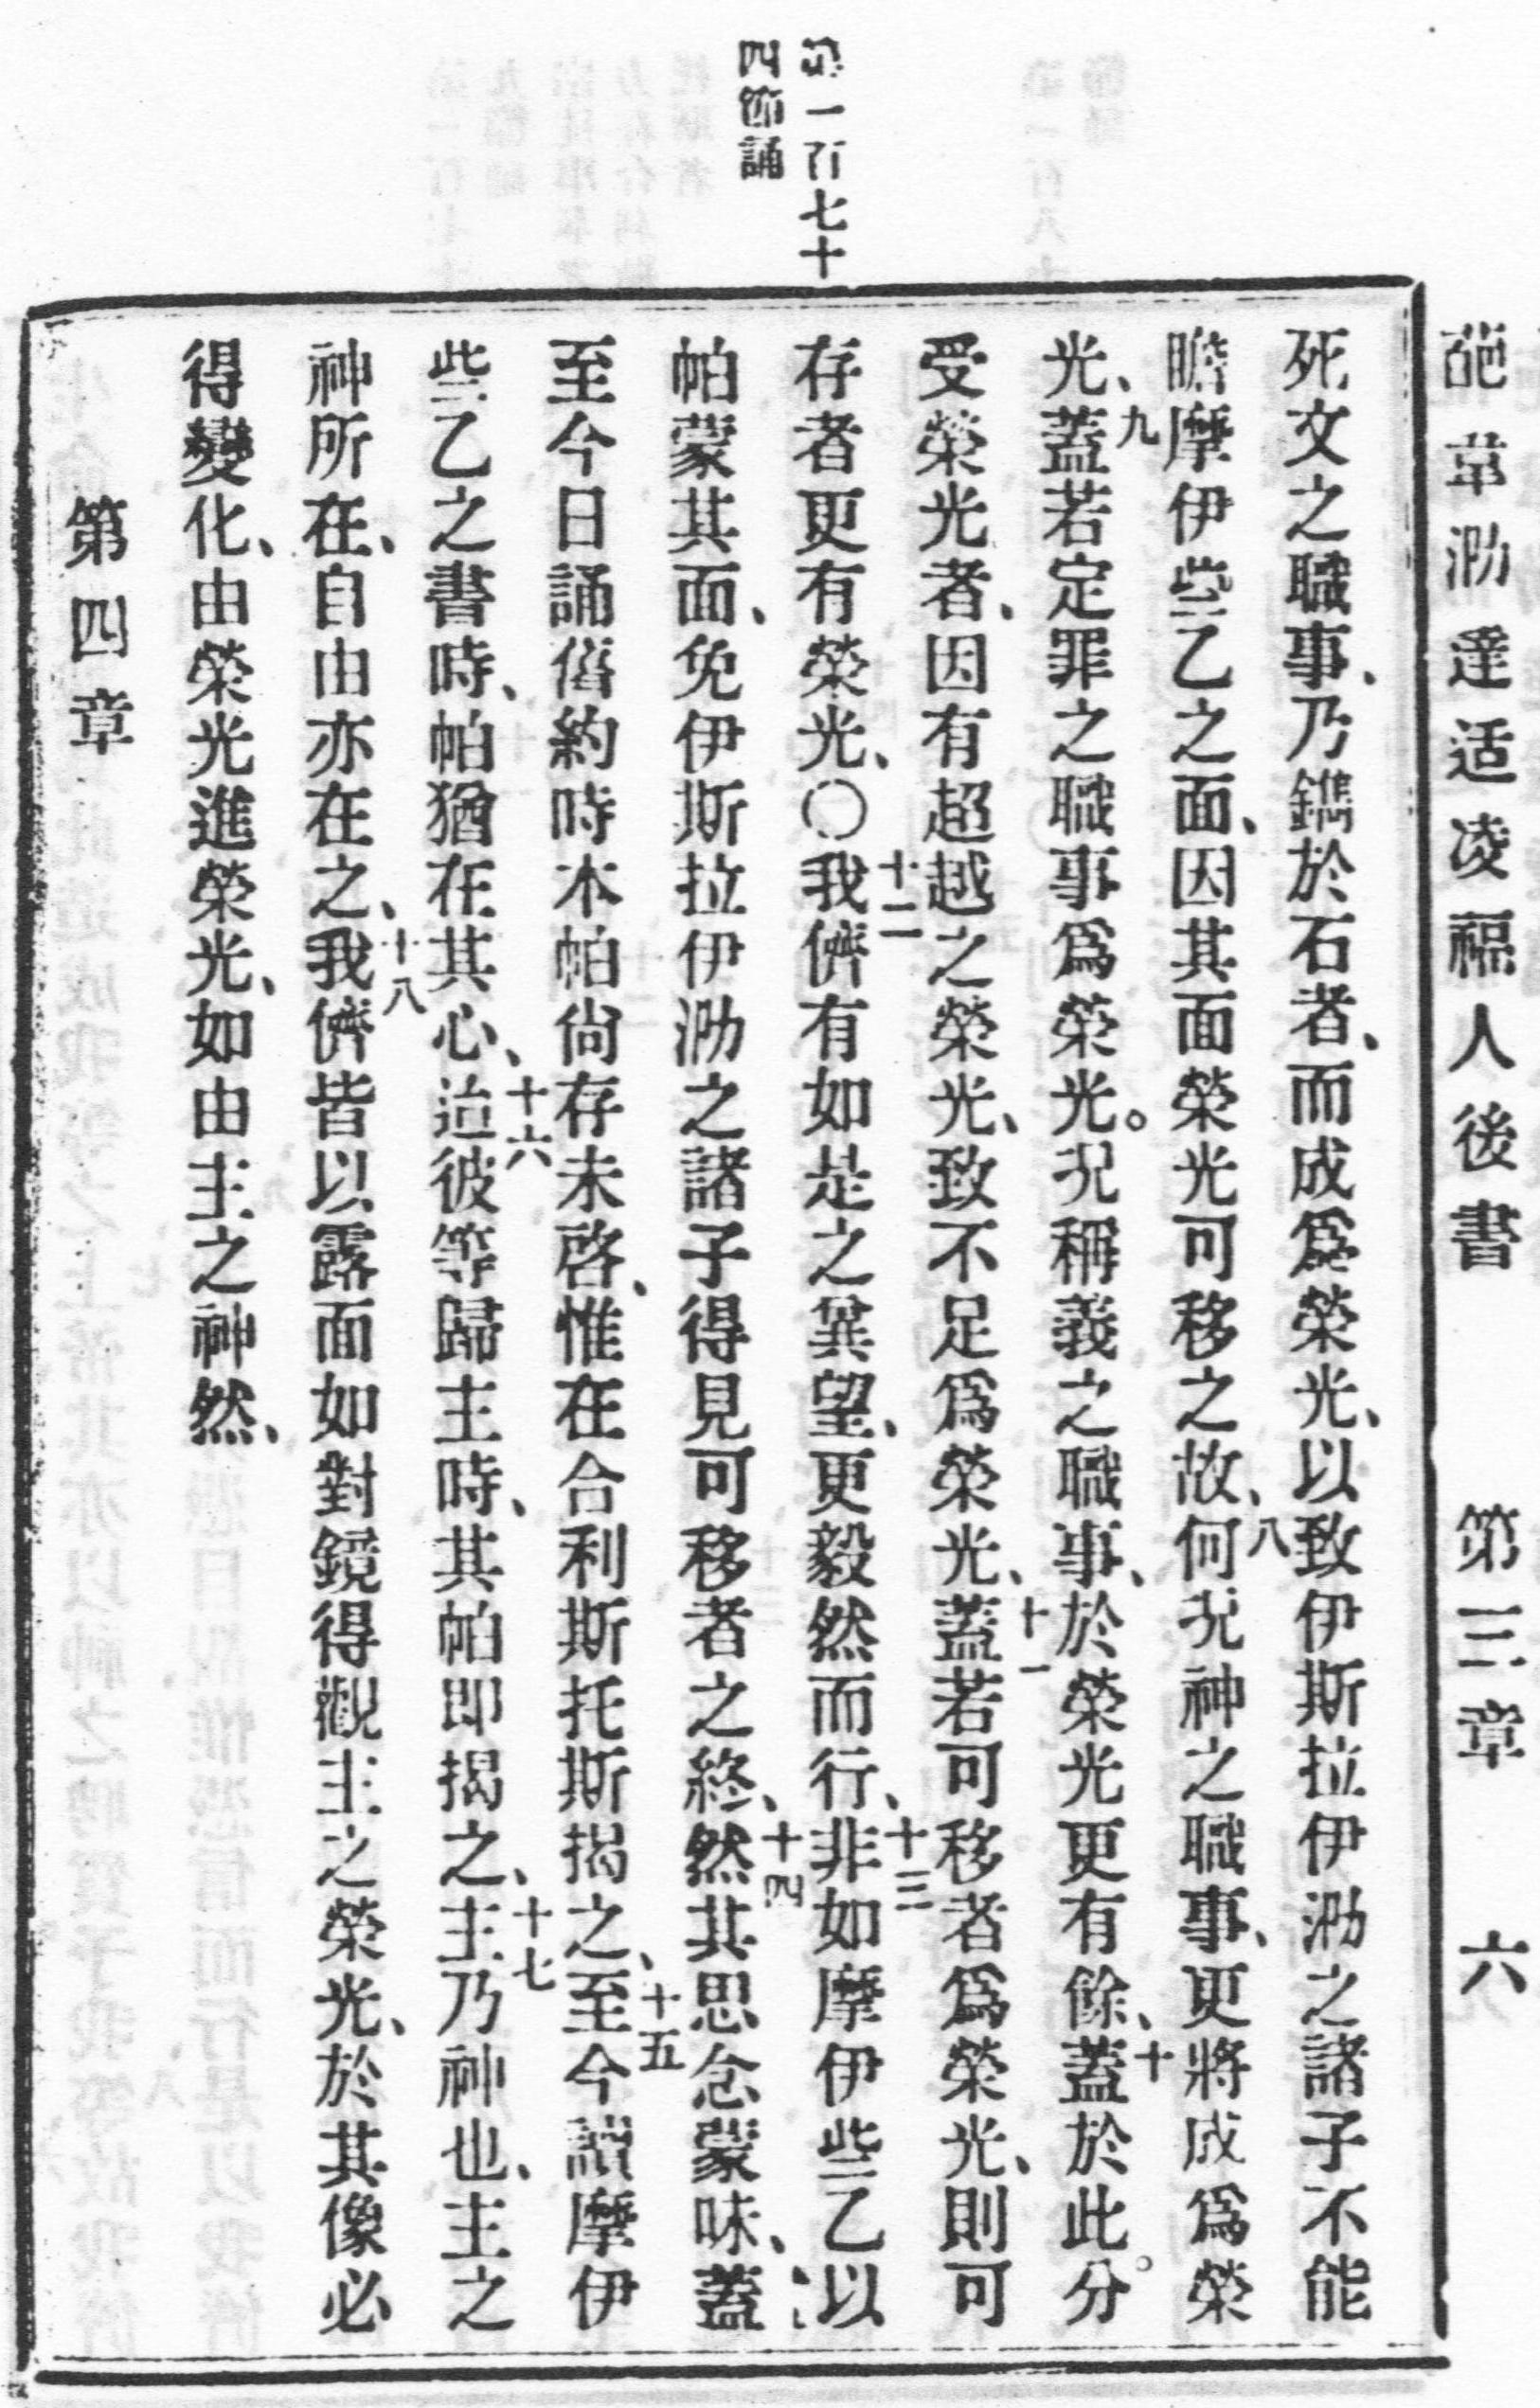 葩韋泐達适凌福人後書　第三章　六
第一百七十
四節誦
死文之職事、乃鐫於石者、而成爲榮光、以致伊斯拉伊泐之諸子不能
瞻摩伊些乙之面、因其面榮光可移之故、八何況神之職事、更將成爲榮
光、九蓋若定罪之職事爲榮光。況稱義之職事、於榮光更有餘、十蓋於此。分
受榮光者、因有超越之榮光、致不足爲榮光、十一蓋若可移者爲榮光、則可
存者更有榮光、〇十二我儕有如是之冀望、更毅然而行、十三非如摩伊些乙以
帕蒙其面、免伊斯拉伊泐之諸子得見可移者之終、十四然其思念蒙昧、蓋
至今日誦舊約時本帕尙存未啓、惟在合利斯托斯揭之、十五至今讀摩伊
些乙之書時、帕猶在其心、十六迨彼等歸主時、其帕即揭之、十七主乃神也、主之
神所在、自由亦在之、十八我儕皆以露面如對鏡得觀主之榮光、於其像必
得變化、由榮光進榮光、如由主之神然、
第四章